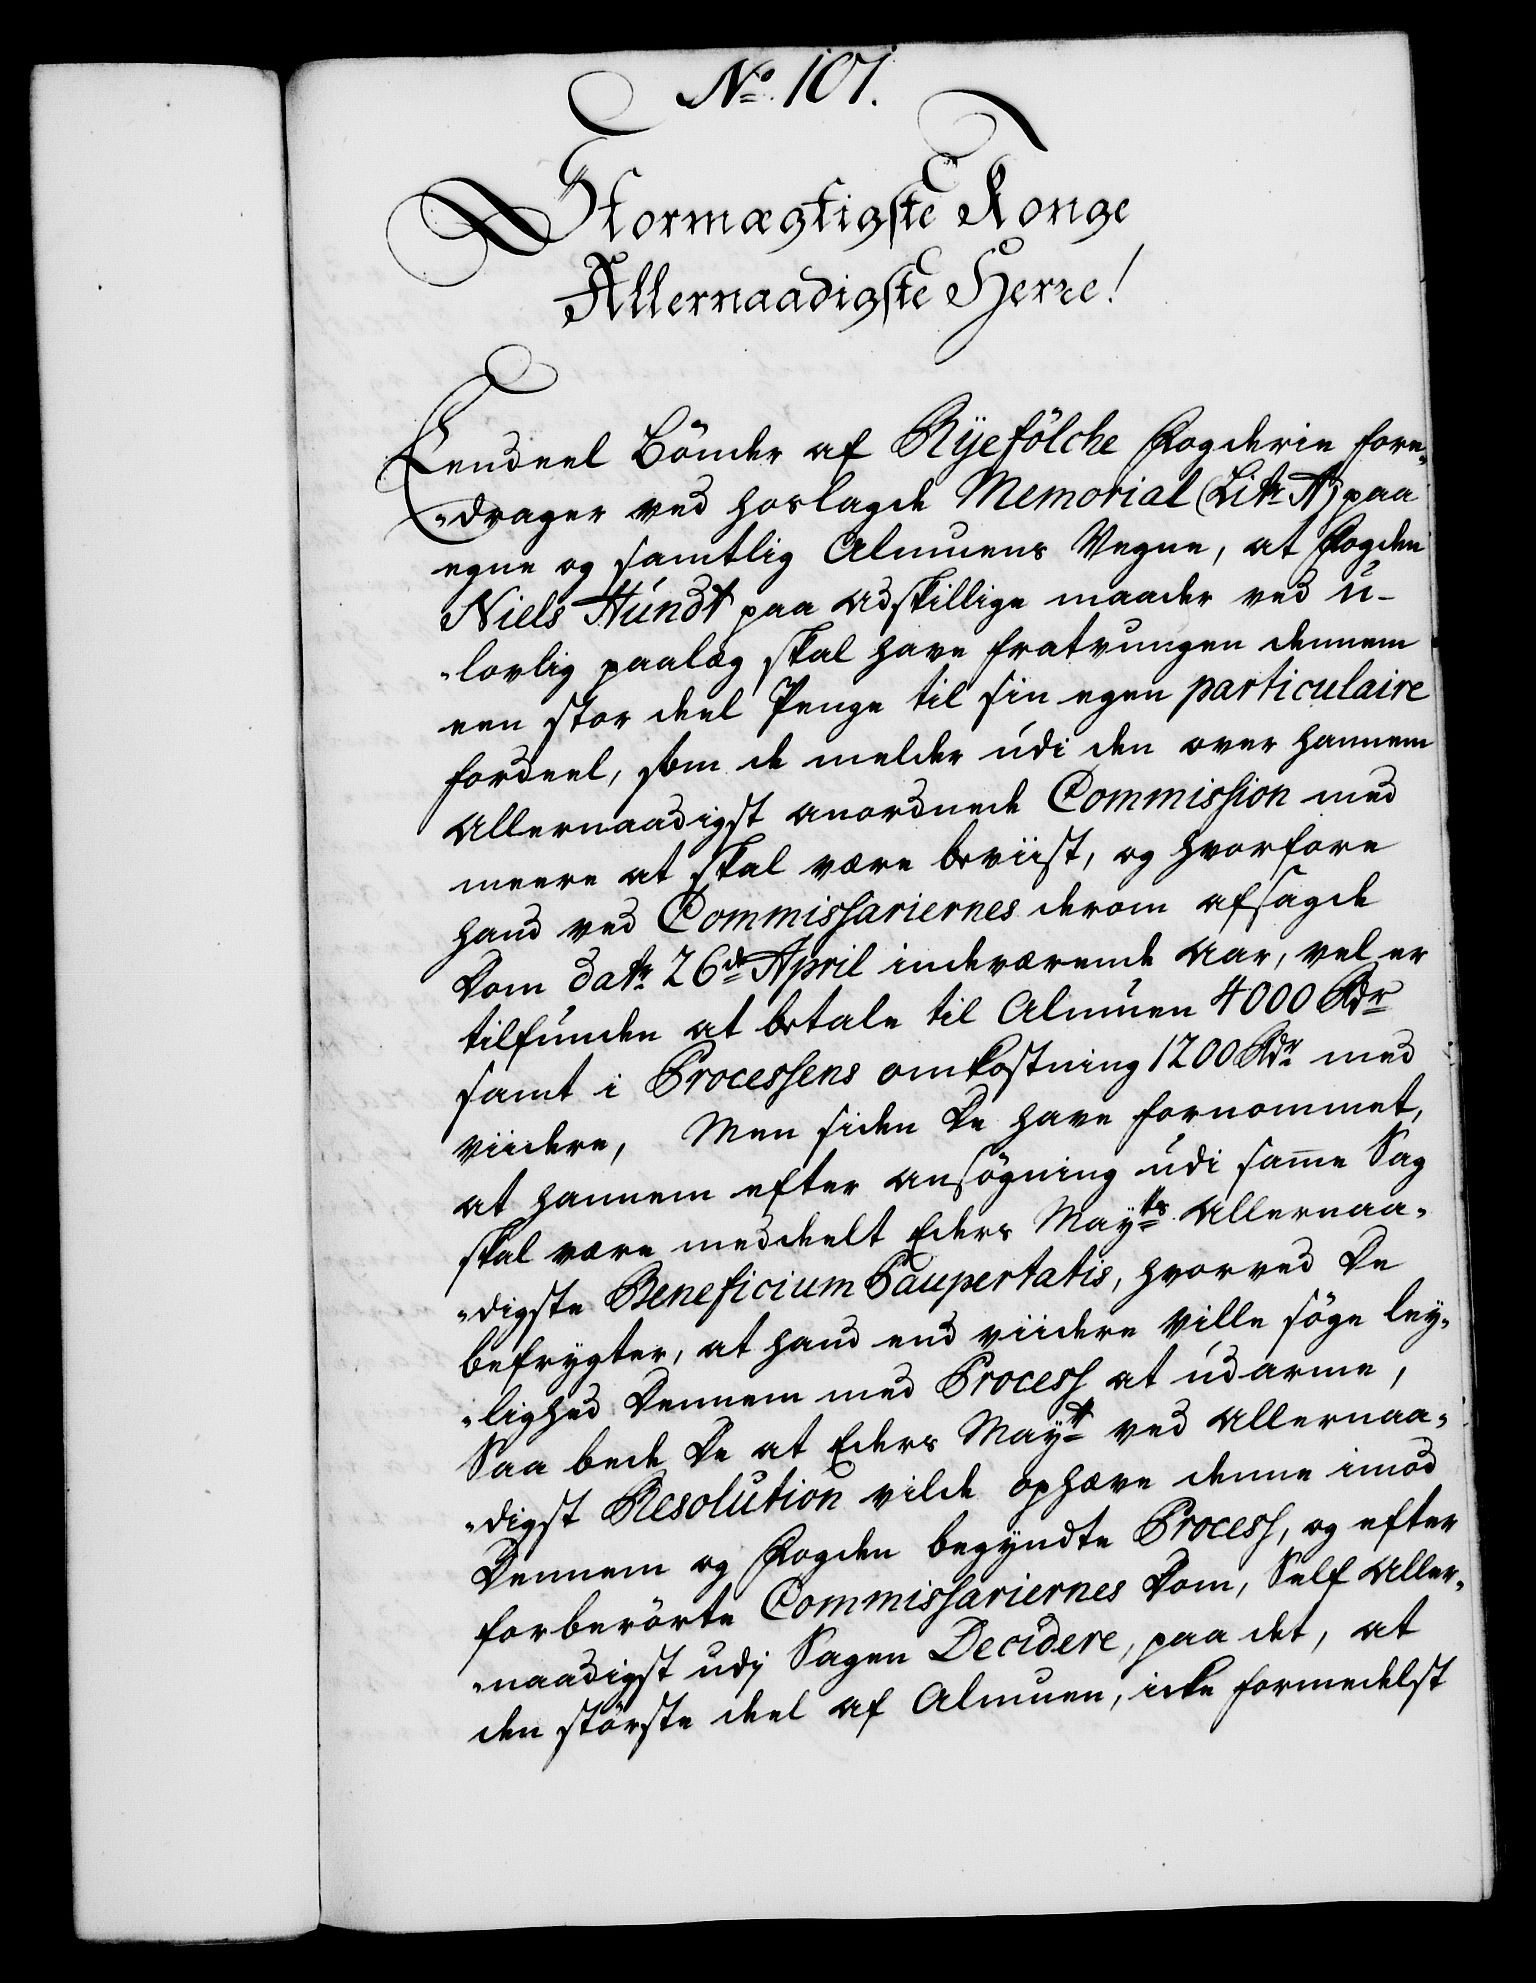 No. 101.
Stormægtigste Konge
Allernaadigste Herre!
Eendeel Bönder af Ryefölche Fogderie fore-
-drager ved hoslagde Memorial (Litr A) paa
egne og samtlig Almuens Vegne, at Fogden
Niels Hundt paa adskillige maader ved u-
-lovlig paalæg skal have fratvungen dennem
een stor deel Penge til sin egen particulaire
fordeel, som de melder udi den over hannem
allernaadigst anordnede Commission med
meere at skal være beviist, og hvorfore
hand ved Commissariernes derom afsagde
Dom datr 26de April indeværende Aar, vel er
tilfunden at betale til Almuen 4000 Rdr
samt i Processens omkostning 1200 Rdr med
viidere, Men siden De have fornommet,
at hannem efter ansögning udi samme Sag
skal være meddeelt Eders Mayts Allernaa-
-digste Beneficium Paupertatis, hvorved De
befrygter, at hand end viidere ville söge ley-
-lighed Dennem med Process at udarme,
Saa bede De at Eders Mayt ved Allernaa-
-digst Resolution vilde ophæve denne imod
Dennem og Fogden begyndte Process, og efter
forberörte Commissariernes Dom, Self Aller-
-naadigst udj Sagen Decidere, paa det, at
den störste deel af Almuen, icke formedelst